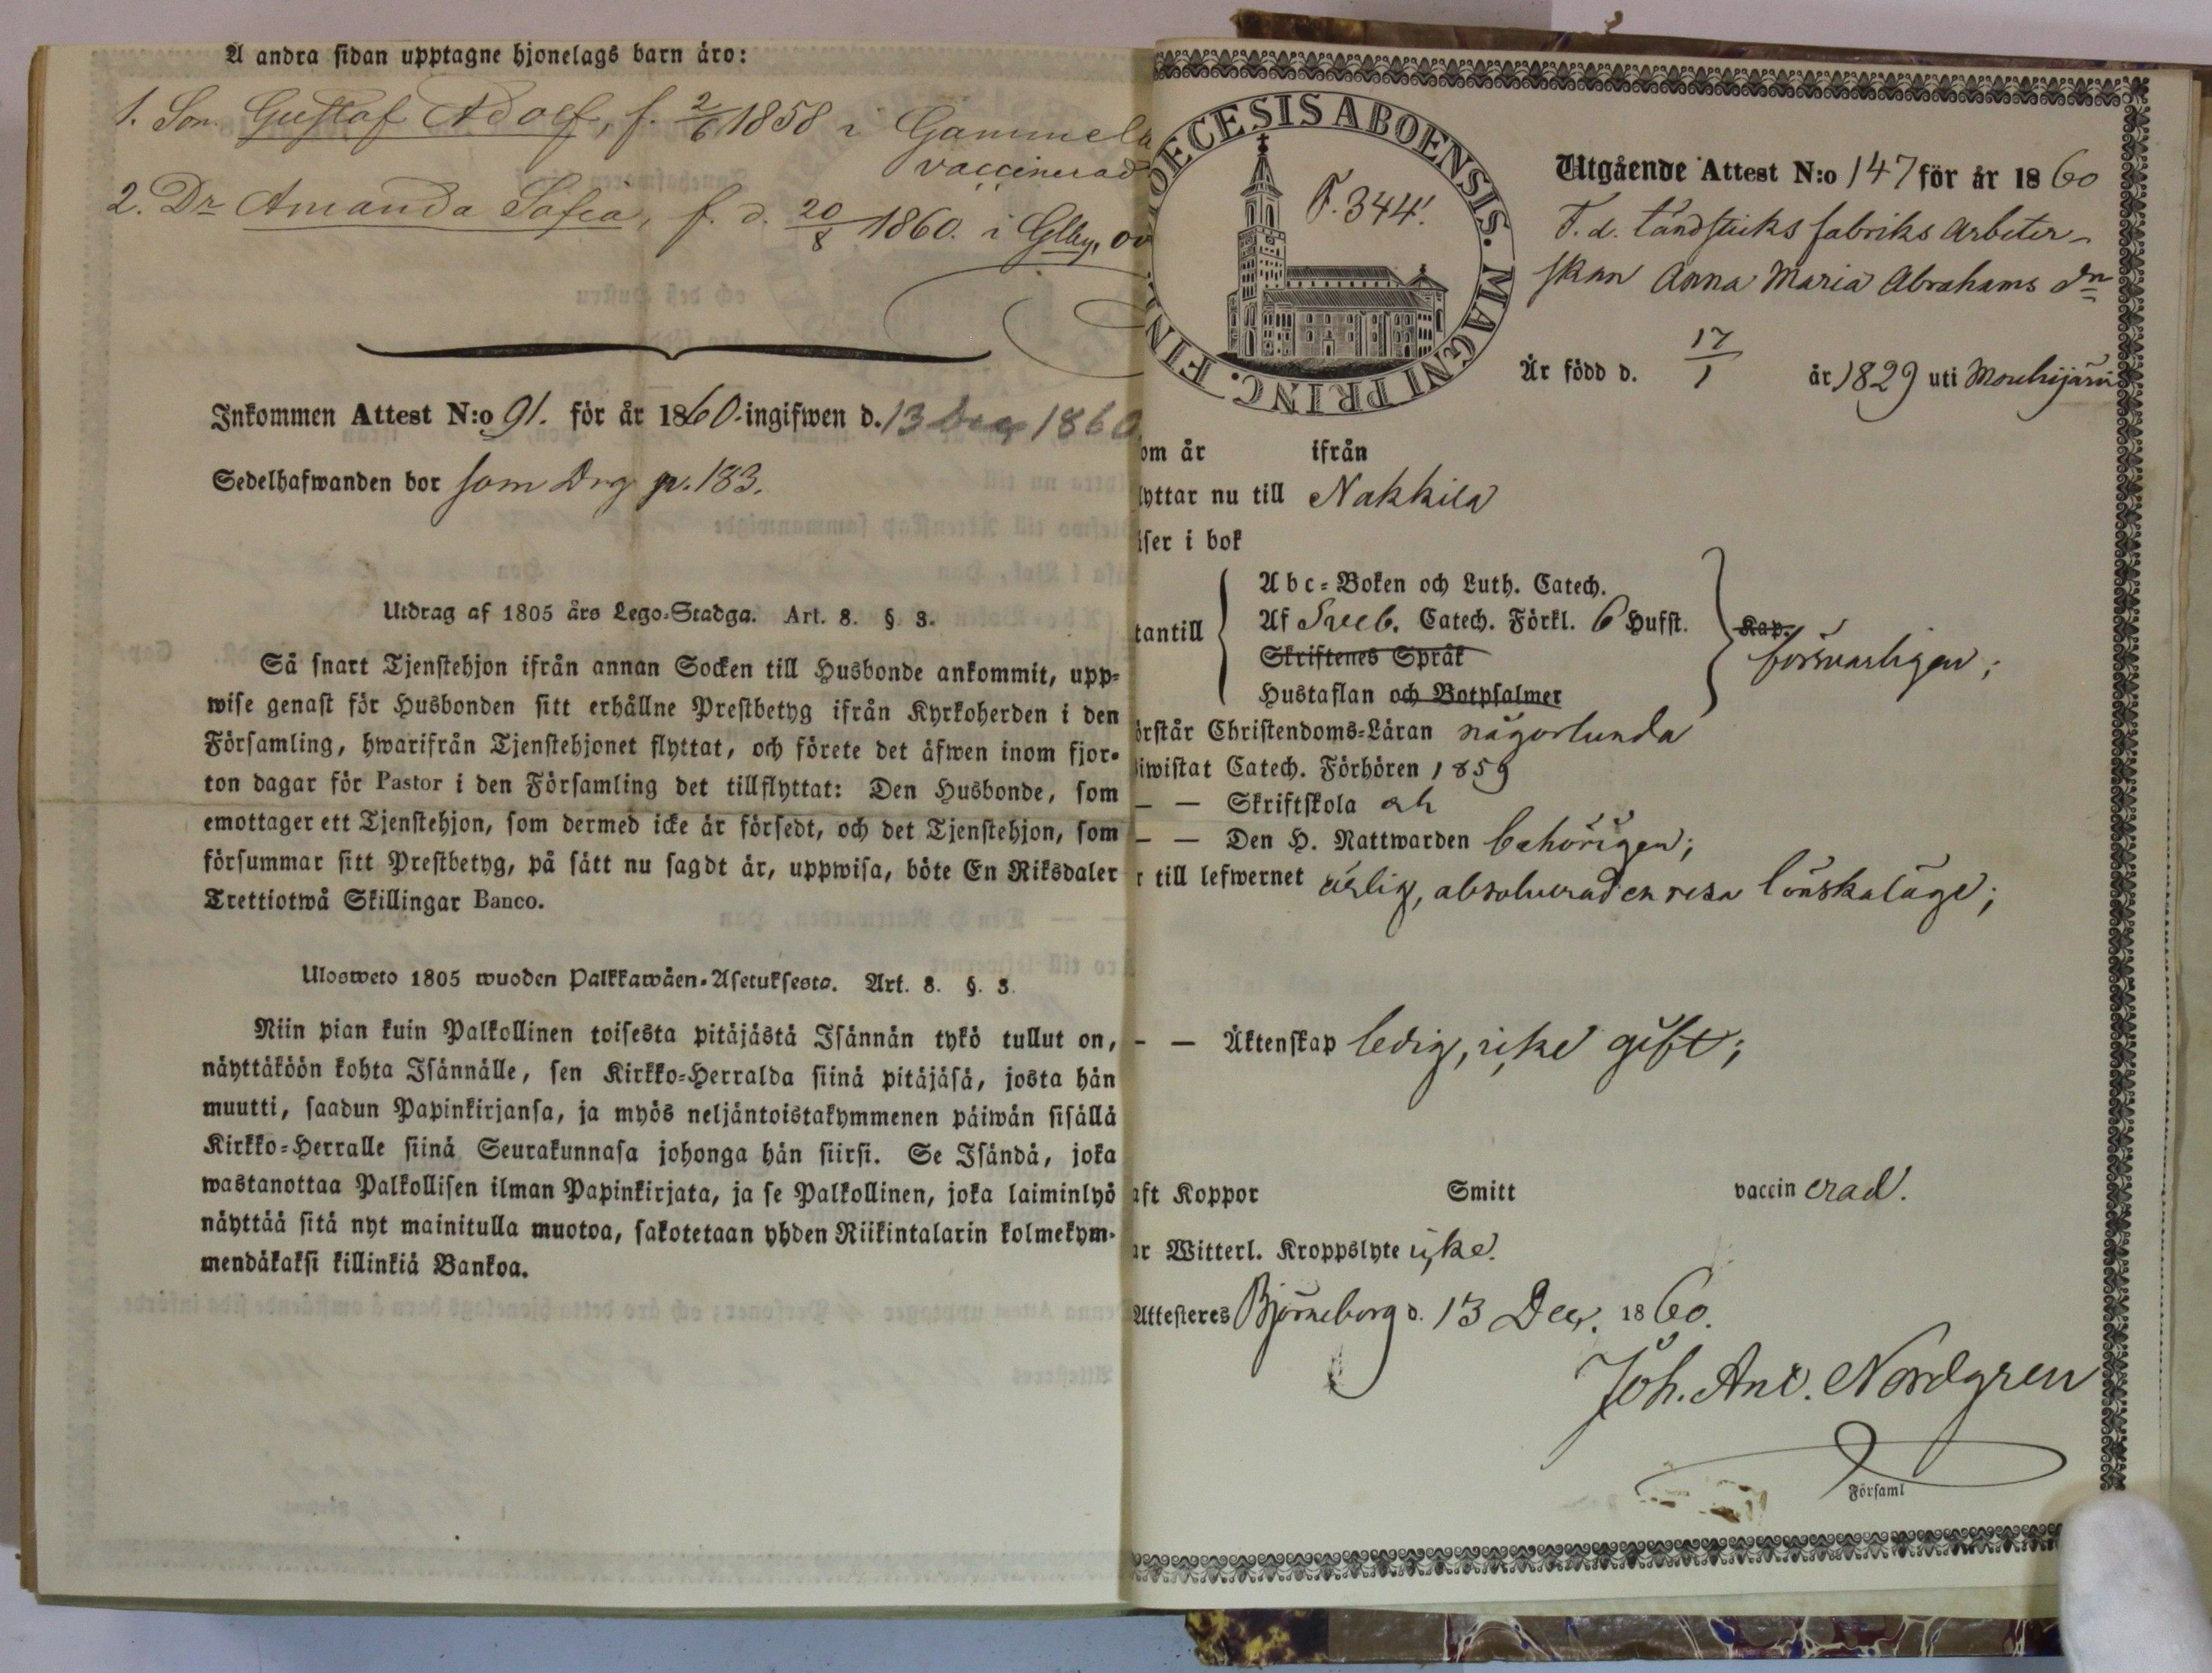 A andra sidan upptagne hjonelags barn äro:
1. Son Gustaf Adolf, f. 2/6 1858 i Gammelb
vaccinerad
2. Dr Amanda Sofia, f. d. 20/8 1860. i Glby, ov
Inkommen Attest N:o 91. för år 1860 ingifwen d. 13 Dec 1860
Sedelhafwanden bor som Drg p. 183.
Utdrag af 1805 års Lego-Stadga. Art. 8. § 3.
Så snart Tjenstehjon ifrån annan Socken till Husbonde ankommit, upp-
wise genast för Husbonden sitt erhållne Prestbetyg ifrån Kyrkoherden i den
Församling, hwarifrån Tjenstehjonet flyttat, och förete det äfwen inom fjor-
ton dagar för Pastor i den Församling det tillflyttat: Den Husbonde, som
emottager ett Tjenstehjon, som dermed icke är försedt, och det Tjenstehjon, som
försummar sitt Prestbetyg, på sätt nu sagdt är, uppwisa, böte En Riksdaler
Trettiotwå Skillingar Banco.
Ulosweto 1805 wuoden Palkkawäen-Asetuksesta. Art. 8. §. 3.
Niin pian kuin Palkollinen toisesta pitäjästä Isännän tykö tullut on,
näyttäköön kohta Isännälle, sen Kirkko-Herralda siinä pitäjäsä, josta hän
muutti, saadun Papinkirjansa, ja myös neljäntoistakymmenen päiwän sisällä
Kirkko-Herralle siinä Seurakunnasa johonga hän siirsi. Se Isändä, joka
wastanottaa Palkollisen ilman Papinkirjata, ja se Palkollinen, joka laiminlyö
näyttää sitä nyt mainitulla muotoa, sakotetaan yhden Riikintalarin kolmekym-
mendäkaksi killinkiä Bankoa.
DIOECESIS ABOENSIS. MAGNI PRINC. FIN
F. 344.
Utgående Attest N:o 147 för år 1860
F. d. tändsticks fabriks arbeter-
skan Anna Maria Abrahams dr
Är född d. 17/1 år 1829 uti Mouhijärvi
om år ifrån
lyttar nu till Nakkila
äser i bok
Abc-Boken och Luth. Catech.
tantill Af Sveb. Catech. Förkl. 6 Hufst. Kap.
Skriftenes Språk försvarligen;
Hustaflan och Botpsalmer
örstår Christendoms-Läran någorlunda
iwistat Catech. Förhören 1859
— — Skriftskola och
— — Den H. Nattwarden behörigen;
r till lefwernet ärlig, absolverad en resa lönskaläge;
— — Äktenskap ledig, icke gift;
aft Koppor Smitt vaccinerad.
ar Witterl. Kroppslyte icke.
Attesteres Björneborg d. 13 Dec. 1860.
Joh. Ant. Nordgren
Församl